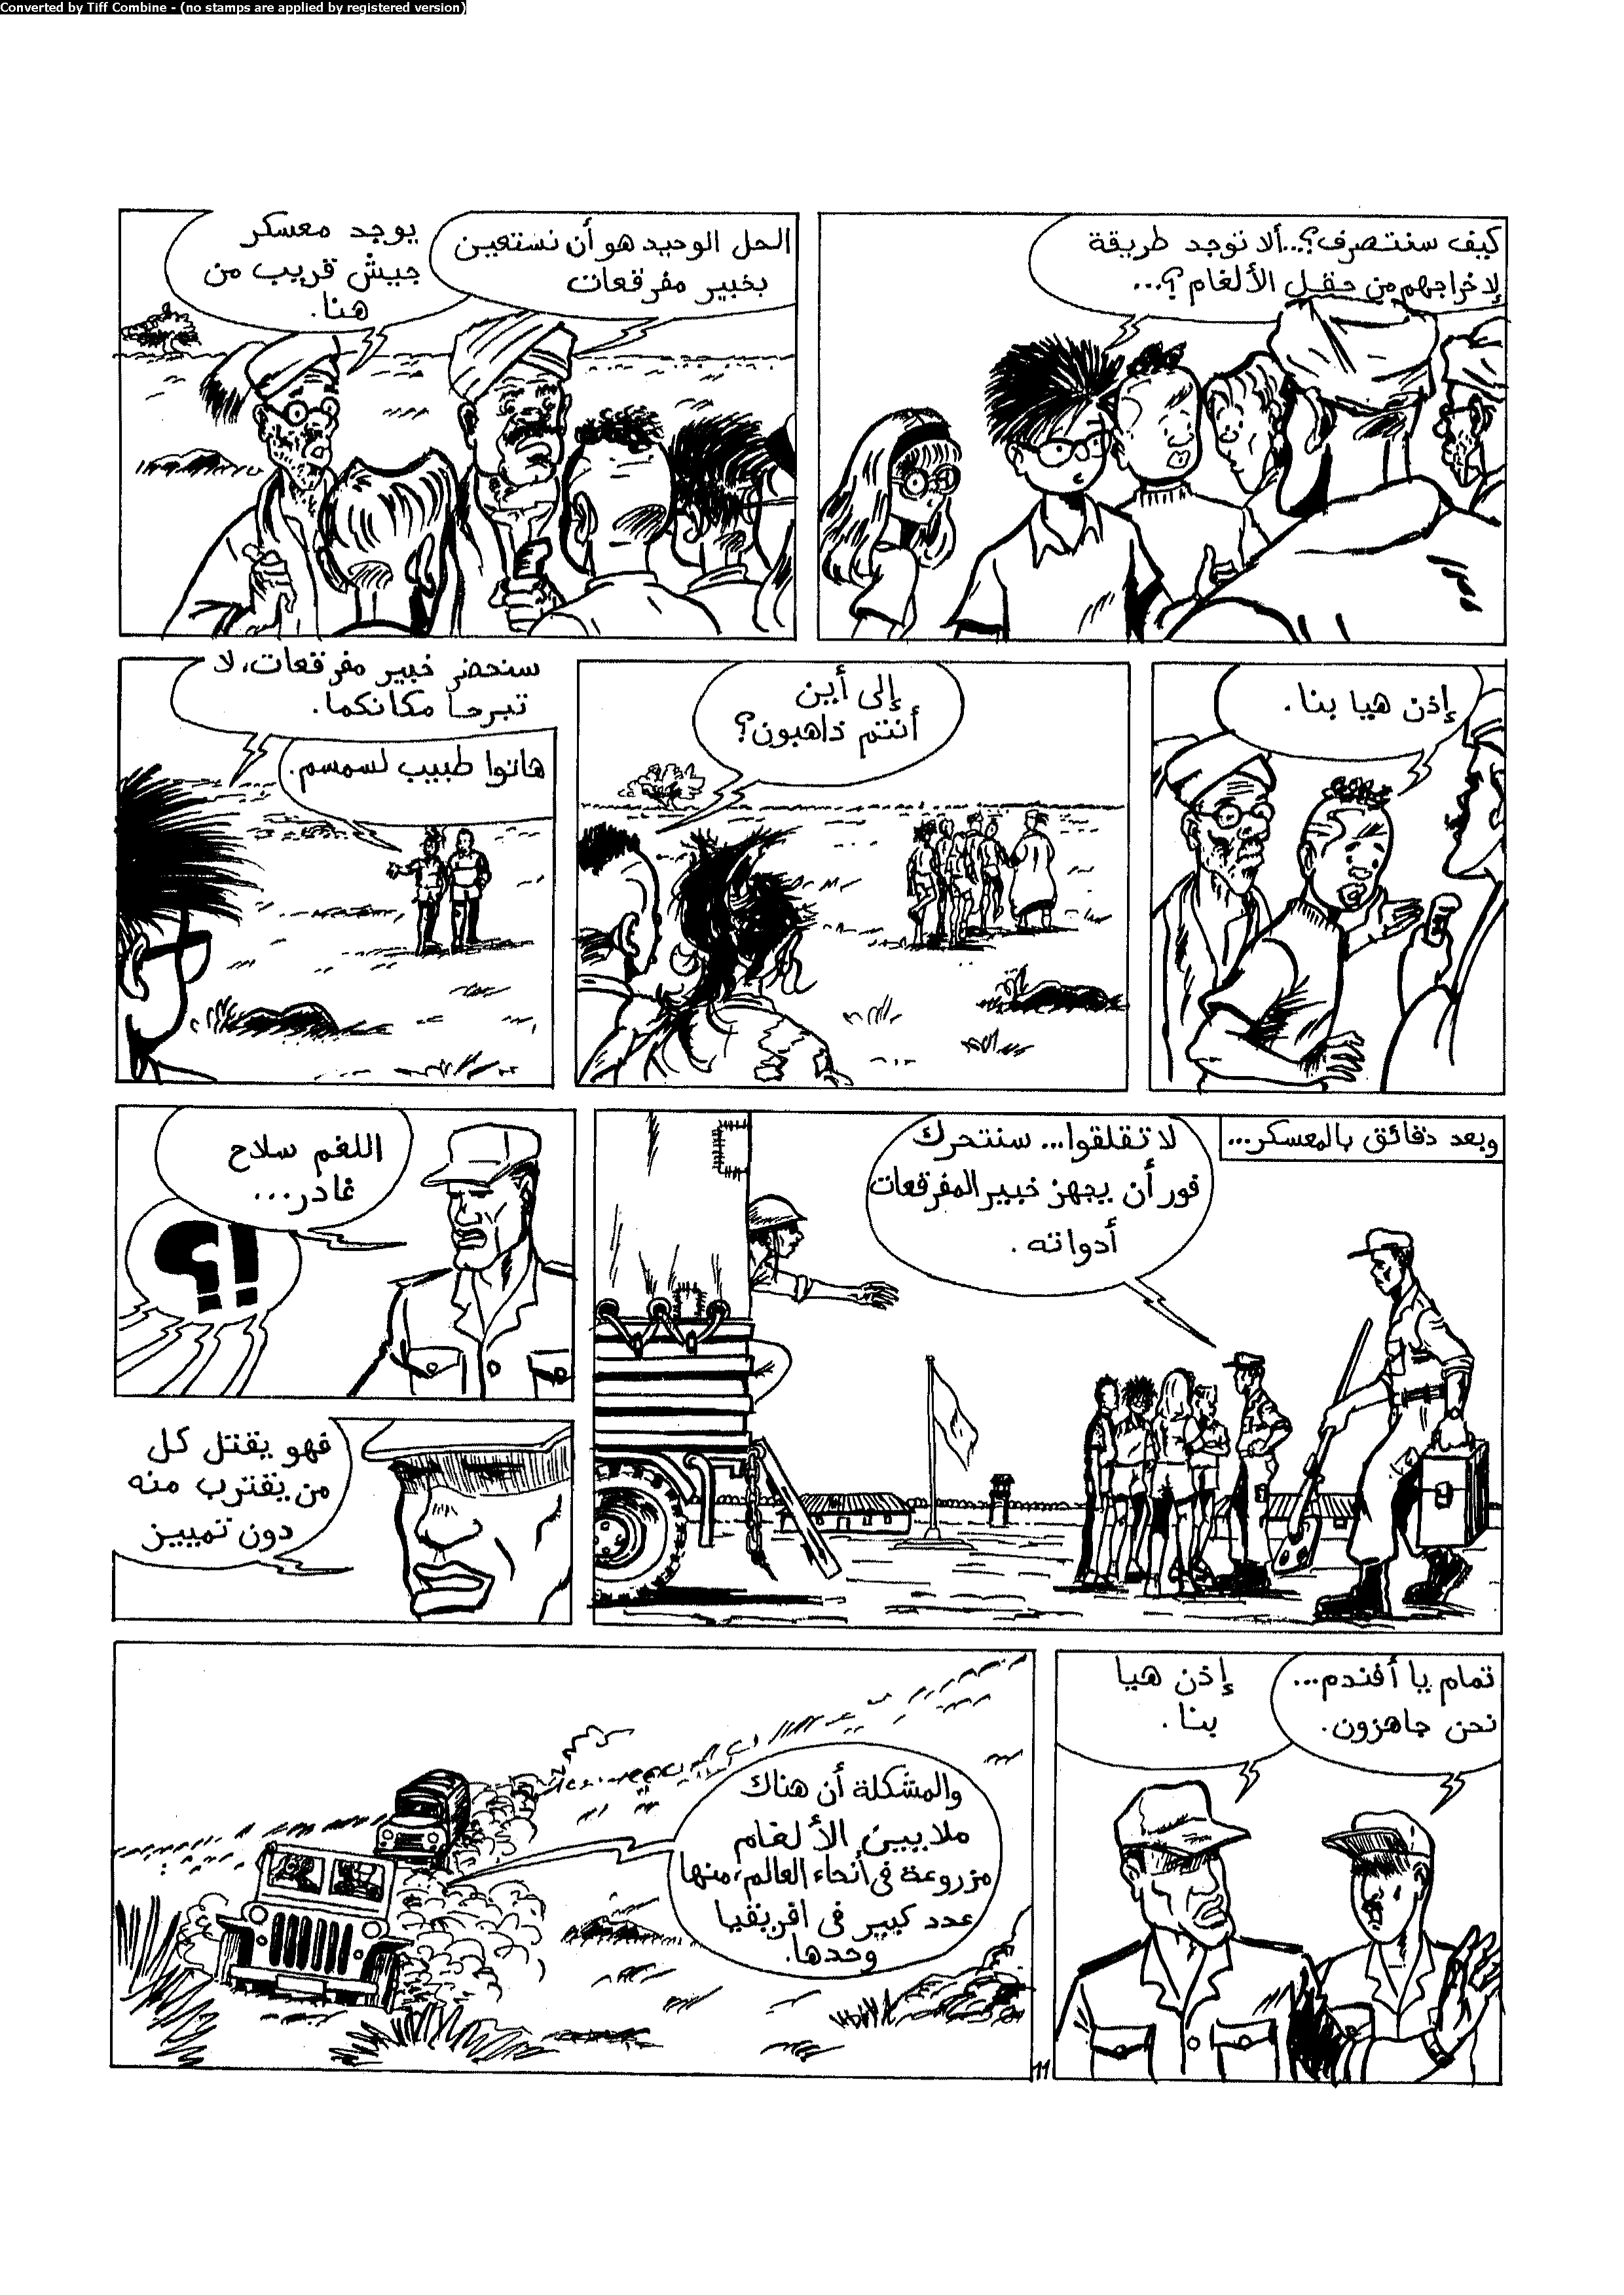 Converted by Tiff Combine - (no stamps are applied by registered version)
كيف سنتصرف؟...ألا توجد طريقة
لإخراجهم من حقل الألغام؟...
الحل الوحيد هو أن نستعين
بخبير مفرقعات
يوجد معسكر
جيش قريب من
هنا.
إذن هيا بنا.
إلى أين
أنتم ذاهبون؟
سنحضر خبير مفرقعات، لا
تبرحا مكانكما.
هاتوا طبيب لسمسم.
وبعد دقائق بالمعسكر...
لا تقلقوا... سنتحرك
فور أن يجهز خبير المفرقعات
أدواته.
اللغم سلاح
غادر...
!؟
فهو يقتل كل
من يقترب منه
دون تمييز
تمام يا أفندم...
نحن جاهزون.
إذن هيا
بنا.
والمشكلة أن هناك
ملايين الألغام
مزروعة فى أنحاء العالم، منها
عدد كبير فى افريقيا
وحدها.
11